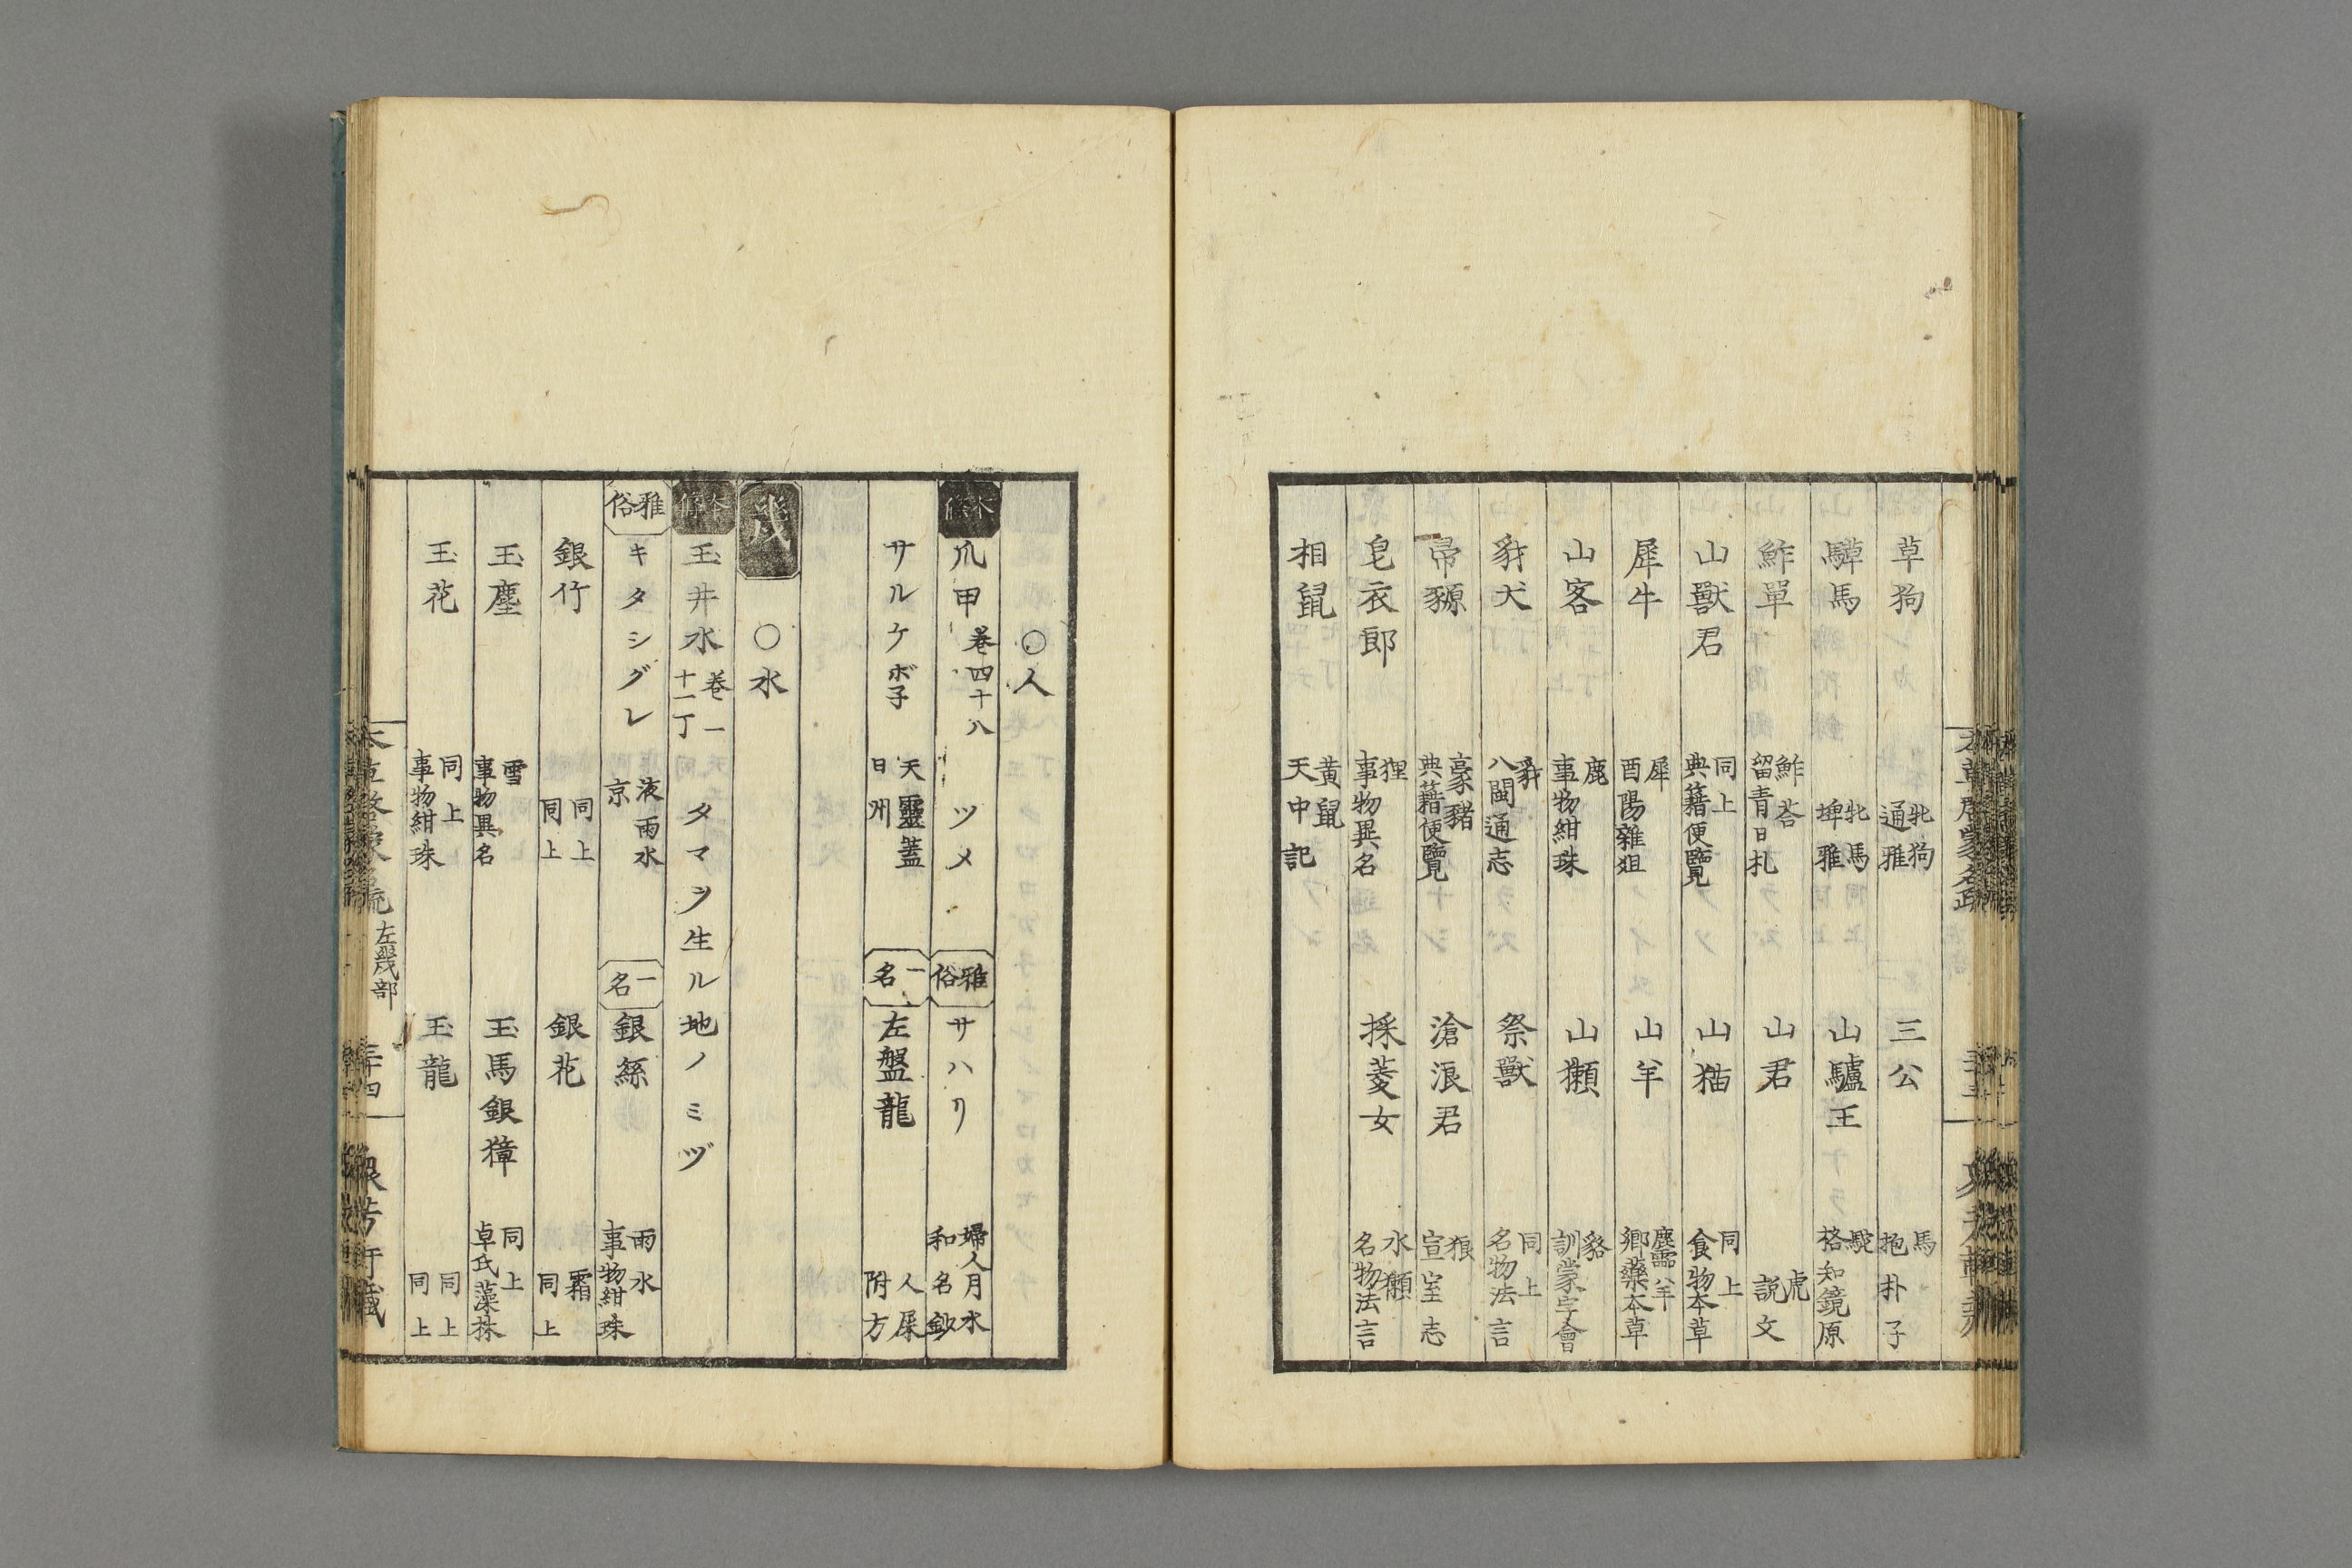 草狗 牝狗 通雅 三公 馬 抱朴子
騲馬 牝馬 埤雅 山驢王 駝 格知鏡原
鮓單 鮓荅 留青日札 山君 虎 説文
山獸君 同上 典籍便覽 山猫 同上 食物本草
犀牛 犀 酉陽雜俎 山羊 鄉藥本草
山客 鹿 事物紺珠 山獺 貉 訓蒙字會
豺犬 豺 八閩通志 祭獸 同上 名物法言
帚豲 豪豬 典籍便覽 滄浪君 狼 宣室志
皂衣郎 狸 事物異名 採菱女 水獺 名物法言
相鼠 黃鼠 天中記
○人
本條 爪甲 卷四十八 ツメ 雅俗 サハリ 婦人月水 和名鈔
サルケボ子 天靈蓋 日州 一名 左盤龍 人屎 附方
幾 ○水
本條 玉井水 卷一 十一丁 タマヲ生ル地ノミヅ
雅俗 キタシグレ 液雨水 京 一名 銀絲 雨水 事物紺珠
銀竹 同上 同上 銀花 霜 同上
玉塵 雪 事物異名 玉馬銀獐 同上 卓氏藻林
玉花 同上 事物紺珠 玉龍 同上 同上
左幾部